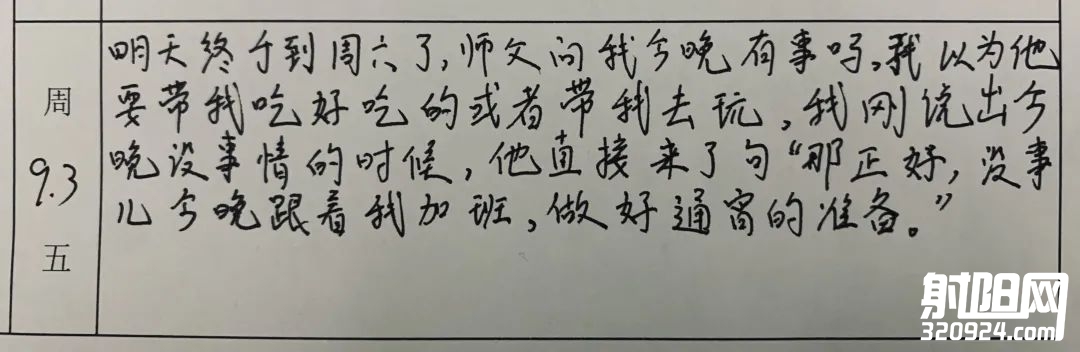 周
9.3
五
明天终于到周六了,师父问我今晚有事吗。我以为他
要带我吃好吃的或者带我去玩,我刚说出今
晚没事情的时候,他直接来了句“那正好,没事
儿今晚跟着我加班,做好通宵的准备。”
射阳网
320924.com